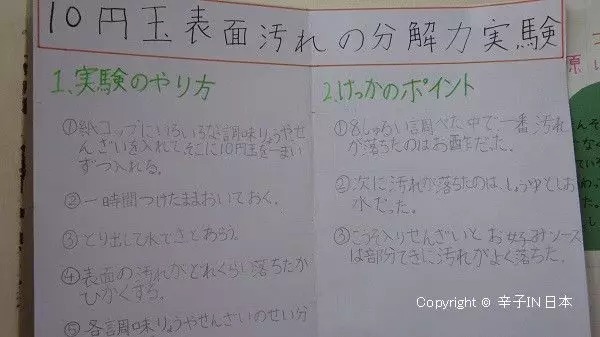 10円玉表面汚れの分解力実験
1.実験のやり方
①紙コップにいろいろな調味りょうやせ
んざいを入れてそこに10円玉を一まい
ずつ入れる。
②一時間つけたままおいておく。
③とり出して水でさとあらう。
④表面の汚れがどれくらい落ちたか
ひかくする。
⑤各調味りょうやせんざいのせい分
2.けっかのポイント
①8しゅるい調べた中で一番汚れ
が落ちたのはお酢だった。
②次に汚れが落ちたのは、しょうゆとしお
水だった。
③こうそ入りせんざいとお好みソース
は部分てきに汚れがよく落ちた。
Copyright © 辛子IN日本